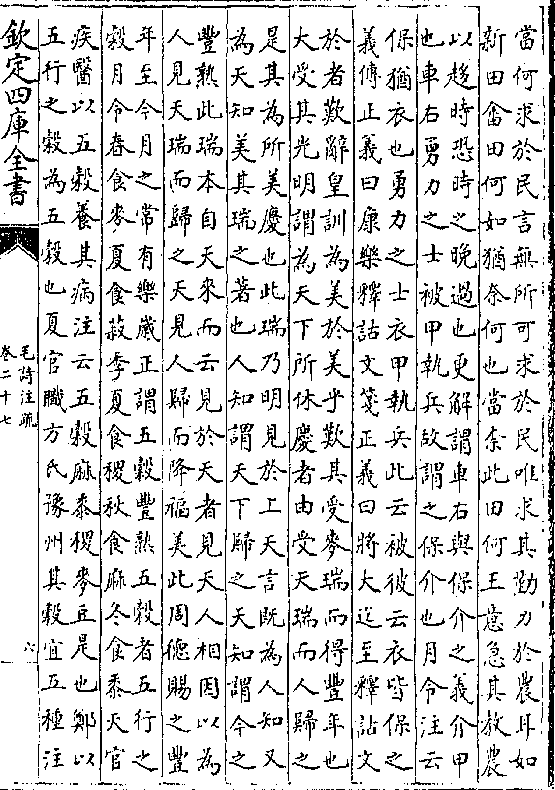 當何求於民言無所可求於民唯求其勤力於農耳如
新田畬田何如猶奈何也當奈此田何王意急其教農
以趍時恐時之晚過也更解謂車右與保介之義介甲
也車右勇力之士被甲執兵故謂之保介也月令注云
保猶衣也勇力之士衣甲執兵此云被彼云衣皆保之
義傳正義曰康樂釋詁文箋正義曰將大迄至釋詁文
於者歎辭皇訓為美於美乎歎其受麥瑞而得豐年也
大受其光明謂為天下所休慶者由受天瑞而人歸之
是其為所美慶也此瑞乃明見於上天言既為人知又
為天知美其瑞之著也人知謂天下歸之天知謂今之
豐熟此瑞本自天來而云見於天者見天人相因以為
人見天瑞而歸之天見人歸而降福美此周德賜之豐
年至今月之常有樂歲正謂五穀豐熟五穀者五行之
穀月令春食麥夏食菽季夏食稷秋食麻冬食黍天官
疾醫以五穀養其病注云五穀麻黍稷麥豆是也鄭以
五行之穀為五穀也夏官職方氏豫州其穀宜五種注
欽定四庫全書
毛詩注疏
卷二十七
六